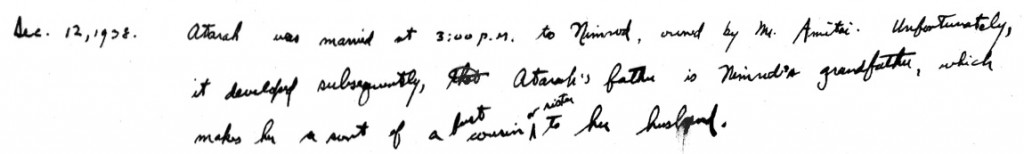 Dec. 12, 1938. Atarah was married at 3:00 p.m. to Nimrod, owned by Mr. Amitai. Unfortunately,
it developed subsequently, that Atarah's father is Nimrod's grandfather, which
makes her a sort of a first cousin or sister to her husband.